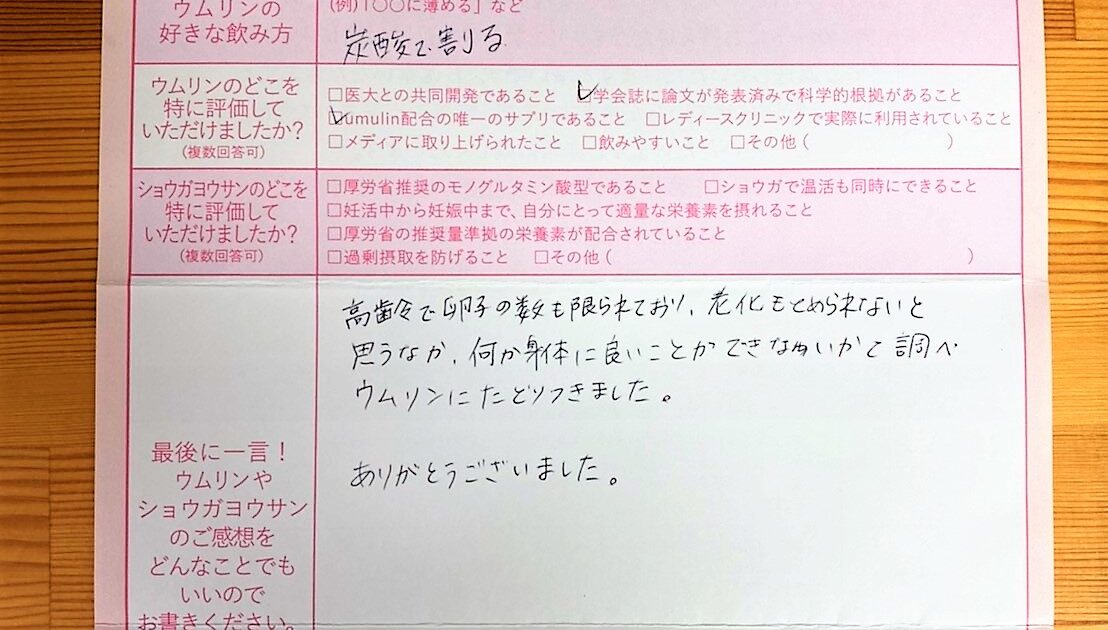 ウムリンの
好きな飲み方
(例)「○○に薄める」など
炭酸で割る
ウムリンのどこを
特に評価して
いただけましたか?
(複数回答可)
□医大との共同開発であること ☑学会誌に論文が発表済みで科学的根拠があること
☑umulin配合の唯一のサプリであること □レディースクリニックで実際に利用されていること
□メディアに取り上げられたこと □飲みやすいこと □その他( )
ショウガヨウサンのどこを
特に評価して
いただけましたか?
(複数回答可)
□厚労省推奨のモノグルタミン酸型であること □ショウガで温活も同時にできること
□妊活中から妊娠中まで、自分にとって適量な栄養素を摂れること
□厚労省の推奨量準拠の栄養素が配合されていること
□過剰摂取を防げること □その他( )
最後に一言!
ウムリンや
ショウガヨウサン
のご感想を
どんなことでも
いいので
お書きください。
高齢で卵子の数も限られており、老化もとめられないと
思うなか、何か身体に良いことができないかて調べ
ウムリンにたどりつきました。
ありがとうございました。